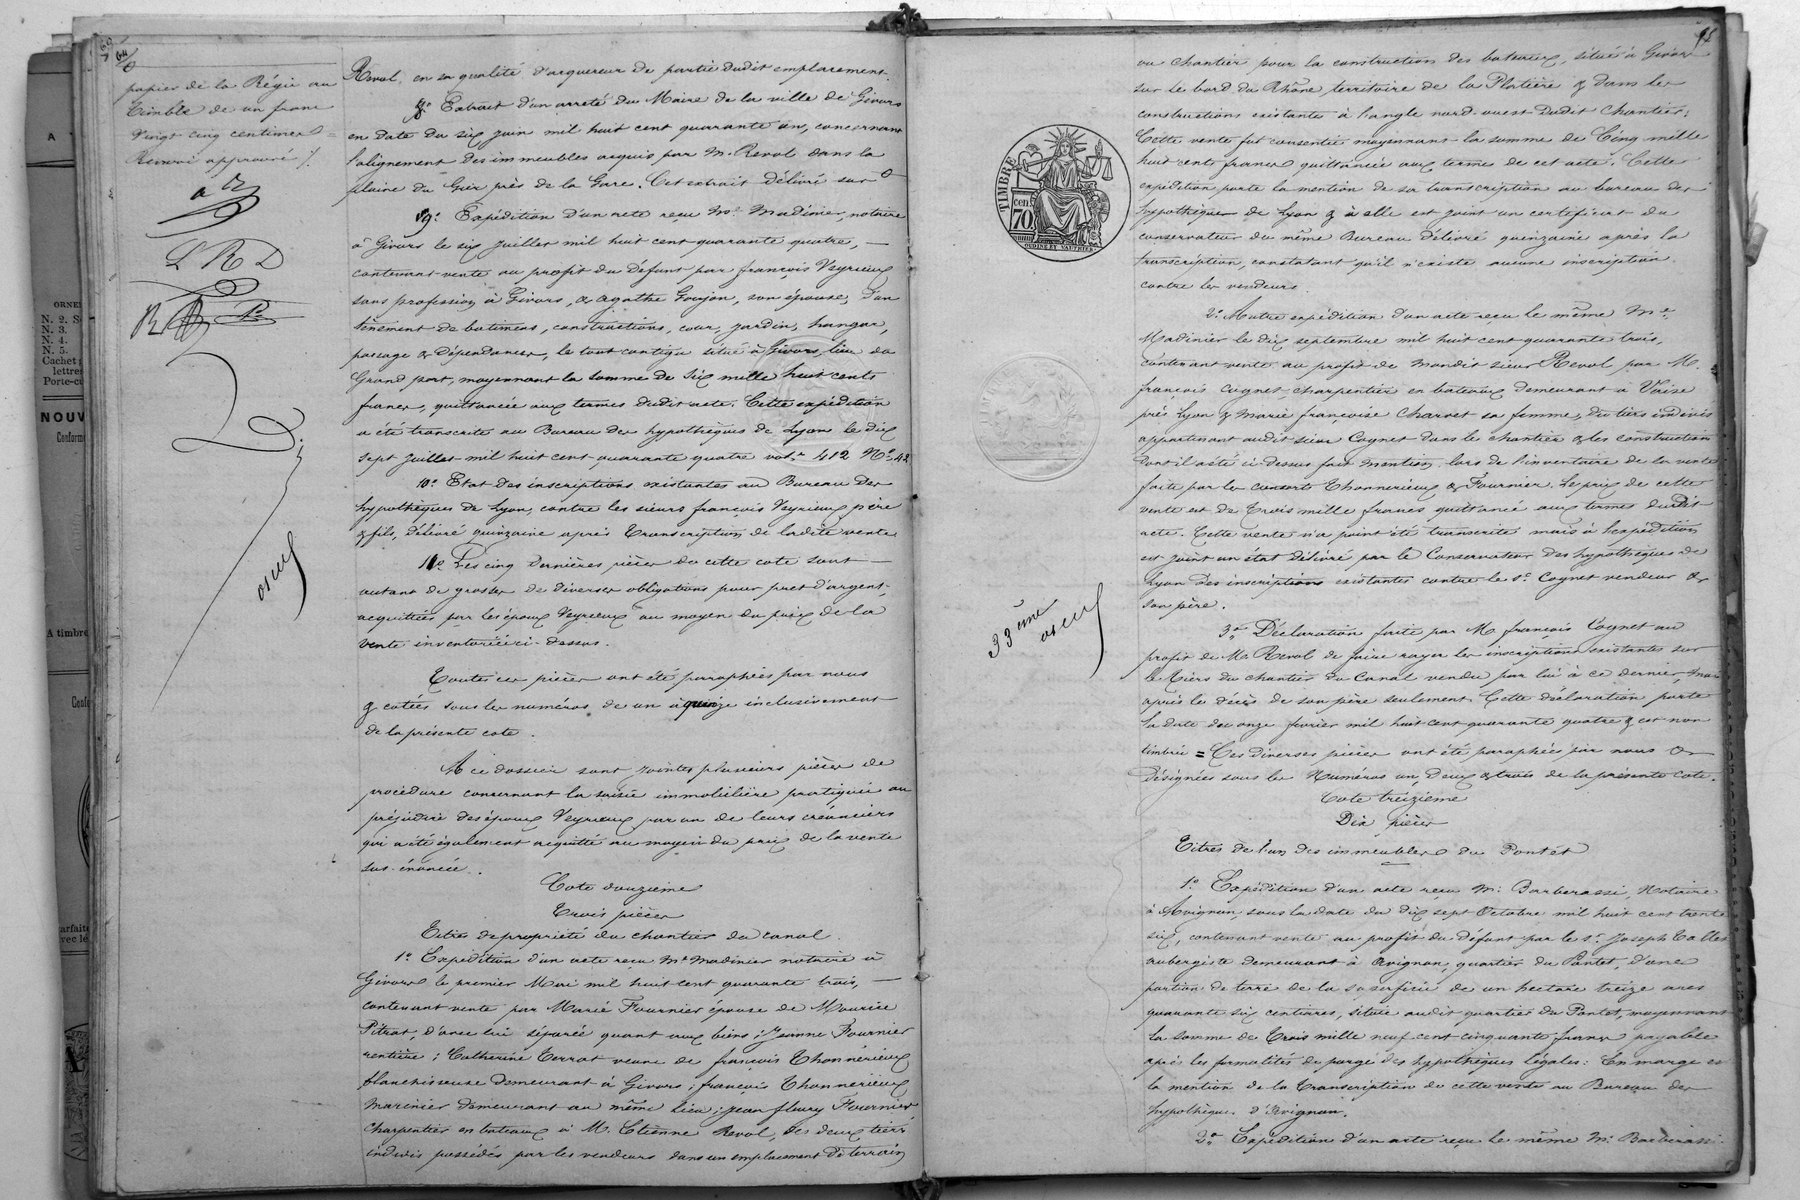 papier de la Régie au
timbre de un franc
vingt cinq centimes =
Renvoi approuvé /.
L R D
Revol, en sa qualité d'acquereur de partie dudit emplacement.
8° Extrait d'un arreté du Maire de la ville de Givors
en date du six juin mil huit cent quarante un, concernant
l'alignement des immeubles acquis par M. Revol dans la
plaine du Gier près de la Gare. Cet extrait délivré sur
9° Expédition d'un acte reçu Me Madinier, notaire
à Givors le six juillet mil huit cent quarante quatre, —
contenant vente au profit du défunt par françois Veyrieux
sans profession à Givors, & Agathe Goujon, son épouse, d'un
tènement de batimens, constructions, cour, jardin, hangar,
passage & dépendances, le tout contigu situé à Givors, lieu du
Grand port, moyennant la somme de six mille huit cents
francs, quittancée aux termes dudit acte. Cette expédition
a été transcrite au Bureau des hypothèques de Lyon le dix
sept juillet mil huit cent quarante quatre vol. 412 N° 42
10° Etat des inscriptions existantes au Bureau des
hypothèques de Lyon, contre les sieurs françois Veyrieux père
& fils, délivré quinzaine après transcription de ladite vente
11° Les cinq dernières pièces de cette cote sont —
autant de grosses de diverses obligations pour pret d'argent,
acquittées par les époux Veyrieux au moyen du prix de la
vente inventoriée ci-dessus.
Toutes ces pièces ont été paraphées par nous
& cotées sous les numéros de un à quinze inclusivement
de la présente cote.
A ce dossier sont jointes plusieurs pièces de
procédure concernant la saisie immobilière pratiquée au
préjudice des époux Veyrieux par un de leurs créanciers
qui a été également acquitté au moyen du prix de la vente
sus-énoncée.
Cote douzième
Trois pièces
Titres de propriété du chantier du canal.
1° Expédition d'un acte reçu Me Madinier notaire à
Givors le premier Mai mil huit cent quarante trois, —
contenant vente par Marie Fournier épouse de Maurice
Pitrat, d'avec lui séparée quant aux biens; Jeanne Fournier
rentière; Catherine Terrat veuve de françois Thonnérieux
blanchisseuse demeurant à Givors; françois Thonnérieux
marinier demeurant au même lieu; jean fleury Fournier
charpentier en bateaux à M. Etienne Revol, des deux tiers
indivis possédés par les vendeurs dans un emplacement de terrain
TIMBRE
cen.
70.
OUDINE ET VAUTHIER
33eme
ou chantier pour la construction des bateaux, situé à Givors
sur le bord du Rhône, territoire de la Platière & dans les
constructions existantes à l'angle nord-ouest dudit chantier;
Cette vente fut consentie moyennant la somme de Cinq mille
huit cents francs quittancée aux termes de cet acte. Cette
expédition porte la mention de sa transcription au bureau des
hypothèques de Lyon & à elle est joint un certificat du
conservateur du même Bureau délivré quinzaine après la
transcription, constatant qu'il n'existe aucune inscription
contre les vendeurs.
2° Autre expédition d'un acte reçu le même Me
Madinier le dix septembre mil huit cent quarante trois,
contenant vente au profit de mondit sieur Revol par M.
françois Cognet, charpentier en bateaux demeurant à Vaise
près Lyon & Marie françoise Charvet sa femme, du tiers indivis
appartenant audit sieur Cognet dans le chantier & les constructions
dont il a été ci-dessus fait mention lors de l'inventaire de la vente
faite par les consorts Thonnerieux & Fournier. Le prix de cette
vente est de Trois mille francs quittancé aux termes dudit
acte. Cette vente n'a point été transcrite mais à l'expédition
est joint un état délivré par le Conservateur des hypothèques de
Lyon des inscriptions existantes contre le sr Cognet vendeur &
son père.
3° Déclaration faite par M. françois Cognet au
profit de M. Revol de faire rayer les inscriptions existantes sur
le tiers du chantier du Canal vendu par lui à ce dernier, mais
après le décès de son père seulement. Cette déclaration porte
la date du onze février mil huit cent quarante quatre & est non
timbrée = Ces diverses pièces ont été paraphées par nous &
désignées sous les Numéros un, deux & trois de la présente cote.
Cote treizième
Dix pièces
Titres de l'un des immeubles du Pontet
1° Expédition d'un acte reçu Me Barberassi, Notaire
à Avignon sous la date du dix sept Octobre mil huit cent trente
six, contenant vente au profit du défunt par le sr Joseph Tallet
aubergiste demeurant à Avignon, quartier du Pontet, d'une
portion de terre de la superficie de un hectare treize ares
quarante six centiares, située audit quartier du Pontet, moyennant
la somme de Trois mille neuf cent cinquante francs payable
après les formalités de purge des hypothèques légales: En marge est
la mention de la transcription de cette vente au Bureau des
hypothèques d'Avignon.
2° Expédition d'un acte reçu le même Me Barberassi